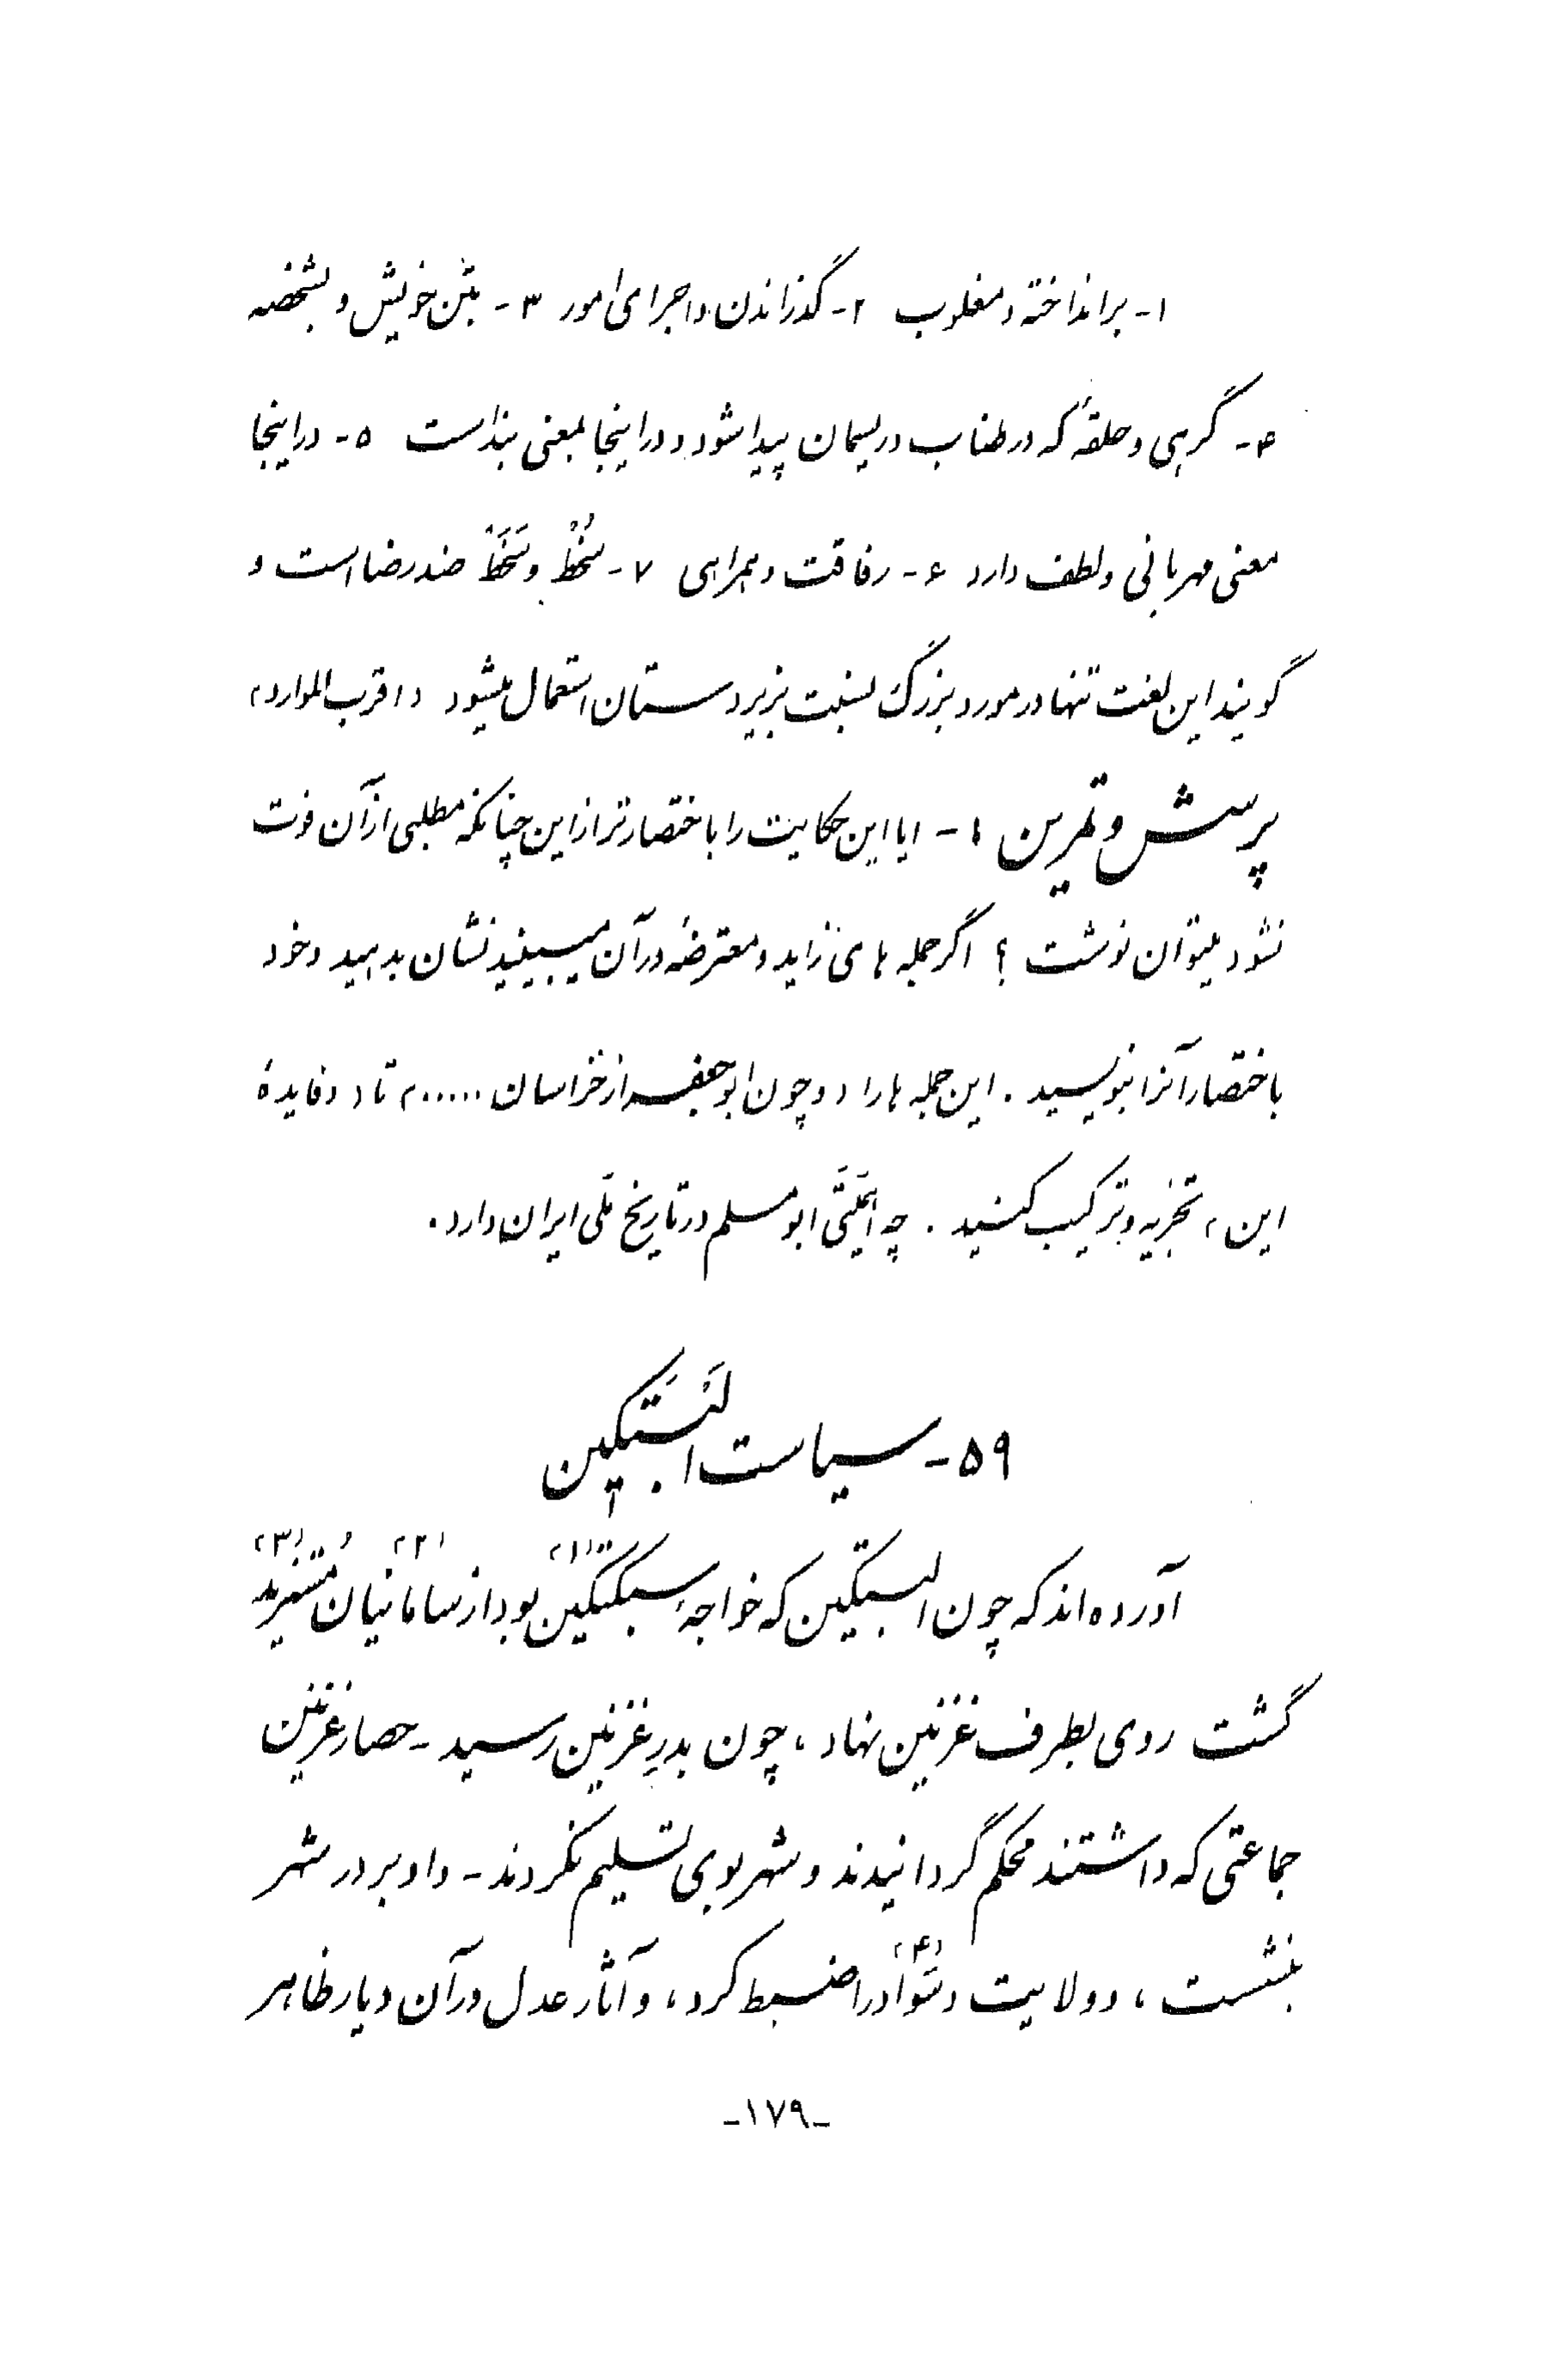 ۱- برانداخته و مغلوب ۲- گذراندن و اجرای امور ۳- بتن خویش و بشخصه
۴- گرهی و حلقهٔ که در طناب و ریسمان پیدا شود و در اینجا بمعنی بند است ۵- در اینجا
معنی مهربانی و لطف دارد ۶- رفاقت و همراهی ۷- سُخْط و سَخَط ضد رضا است و
گویند این لغت تنها در مورد بزرگ نسبت بزیردستان استعمال میشود «اقرب الموارد»
پرسش و تمرین ۱- ایا این حکایت را باختصارتر از این چنانکه مطلبی از آن فوت
نشود میتوان نوشت ؟ اگر جمله های زاید و معترضهٔ در آن میبینید نشان بدهید و خود
باختصار آنرا بنویسید . این جمله ها را « و چون ابوجعفر از خراسان ...... » تا « و فایدهٔ
این » تجزیه و ترکیب کنید . چه اهَمّیَتّی ابومسلم در تاریخ ملّی ایران دارد .
۵۹- سیاست اَلبَتکین
آورده اند که چون البتکین که خواجهٔ سبکتکین «۱» بود از سامانیان «۲» مُستَزید «۳»
گشت روی بطرف غزنین نهاد ، چون بدرِ غزنین رسید - حصار غزنین
جماعتی که داشتند محکم گردانیدند و شهر بوی تسلیم نکردند - و او بر در شهر
بنشست ، و ولایت و سَواد «۴» را ضبط کرد ، و آثار عدل در آن دیار ظاهر
-۱۷۹-